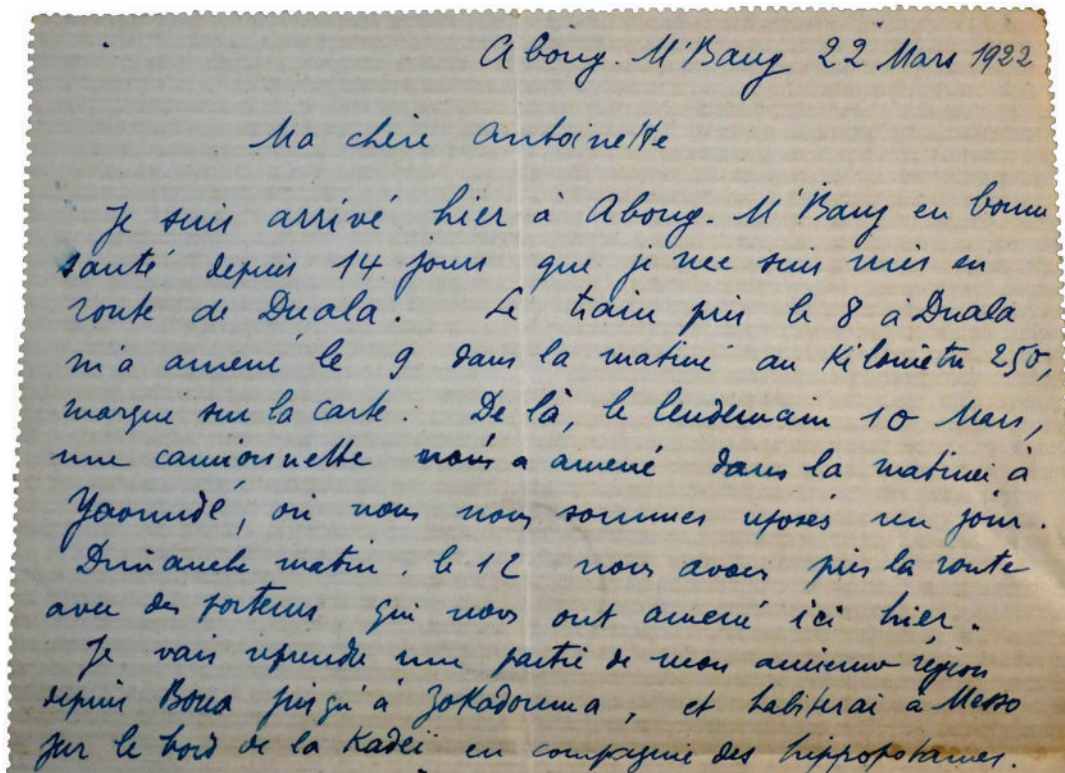 Abong. M'Bang 22 Mars 1922
Ma chère Antoinette
Je suis arrivé hier à Abong. M'Bang en bonne
santé depuis 14 jours que je me suis mis en
route de Duala. Le train pris le 8 à Duala
m'a amené le 9 dans la matiné au Kilomètre 250,
marque sur la carte. De là, le lendemain 10 Mars,
une camionnette nous a amené dans la matinée à
Yaoundé, où nous nous sommes reposés un jour.
Dimanche matin, le 12 nous avons pris la route
avec des porteurs qui nous ont amené ici hier.
Je vais reprendre une partie de mon ancienne région
depuis jusqu'à Jokadouma, et habiterai à Messo
sur le bord de la Kadeï en compagnie des hippopotames.